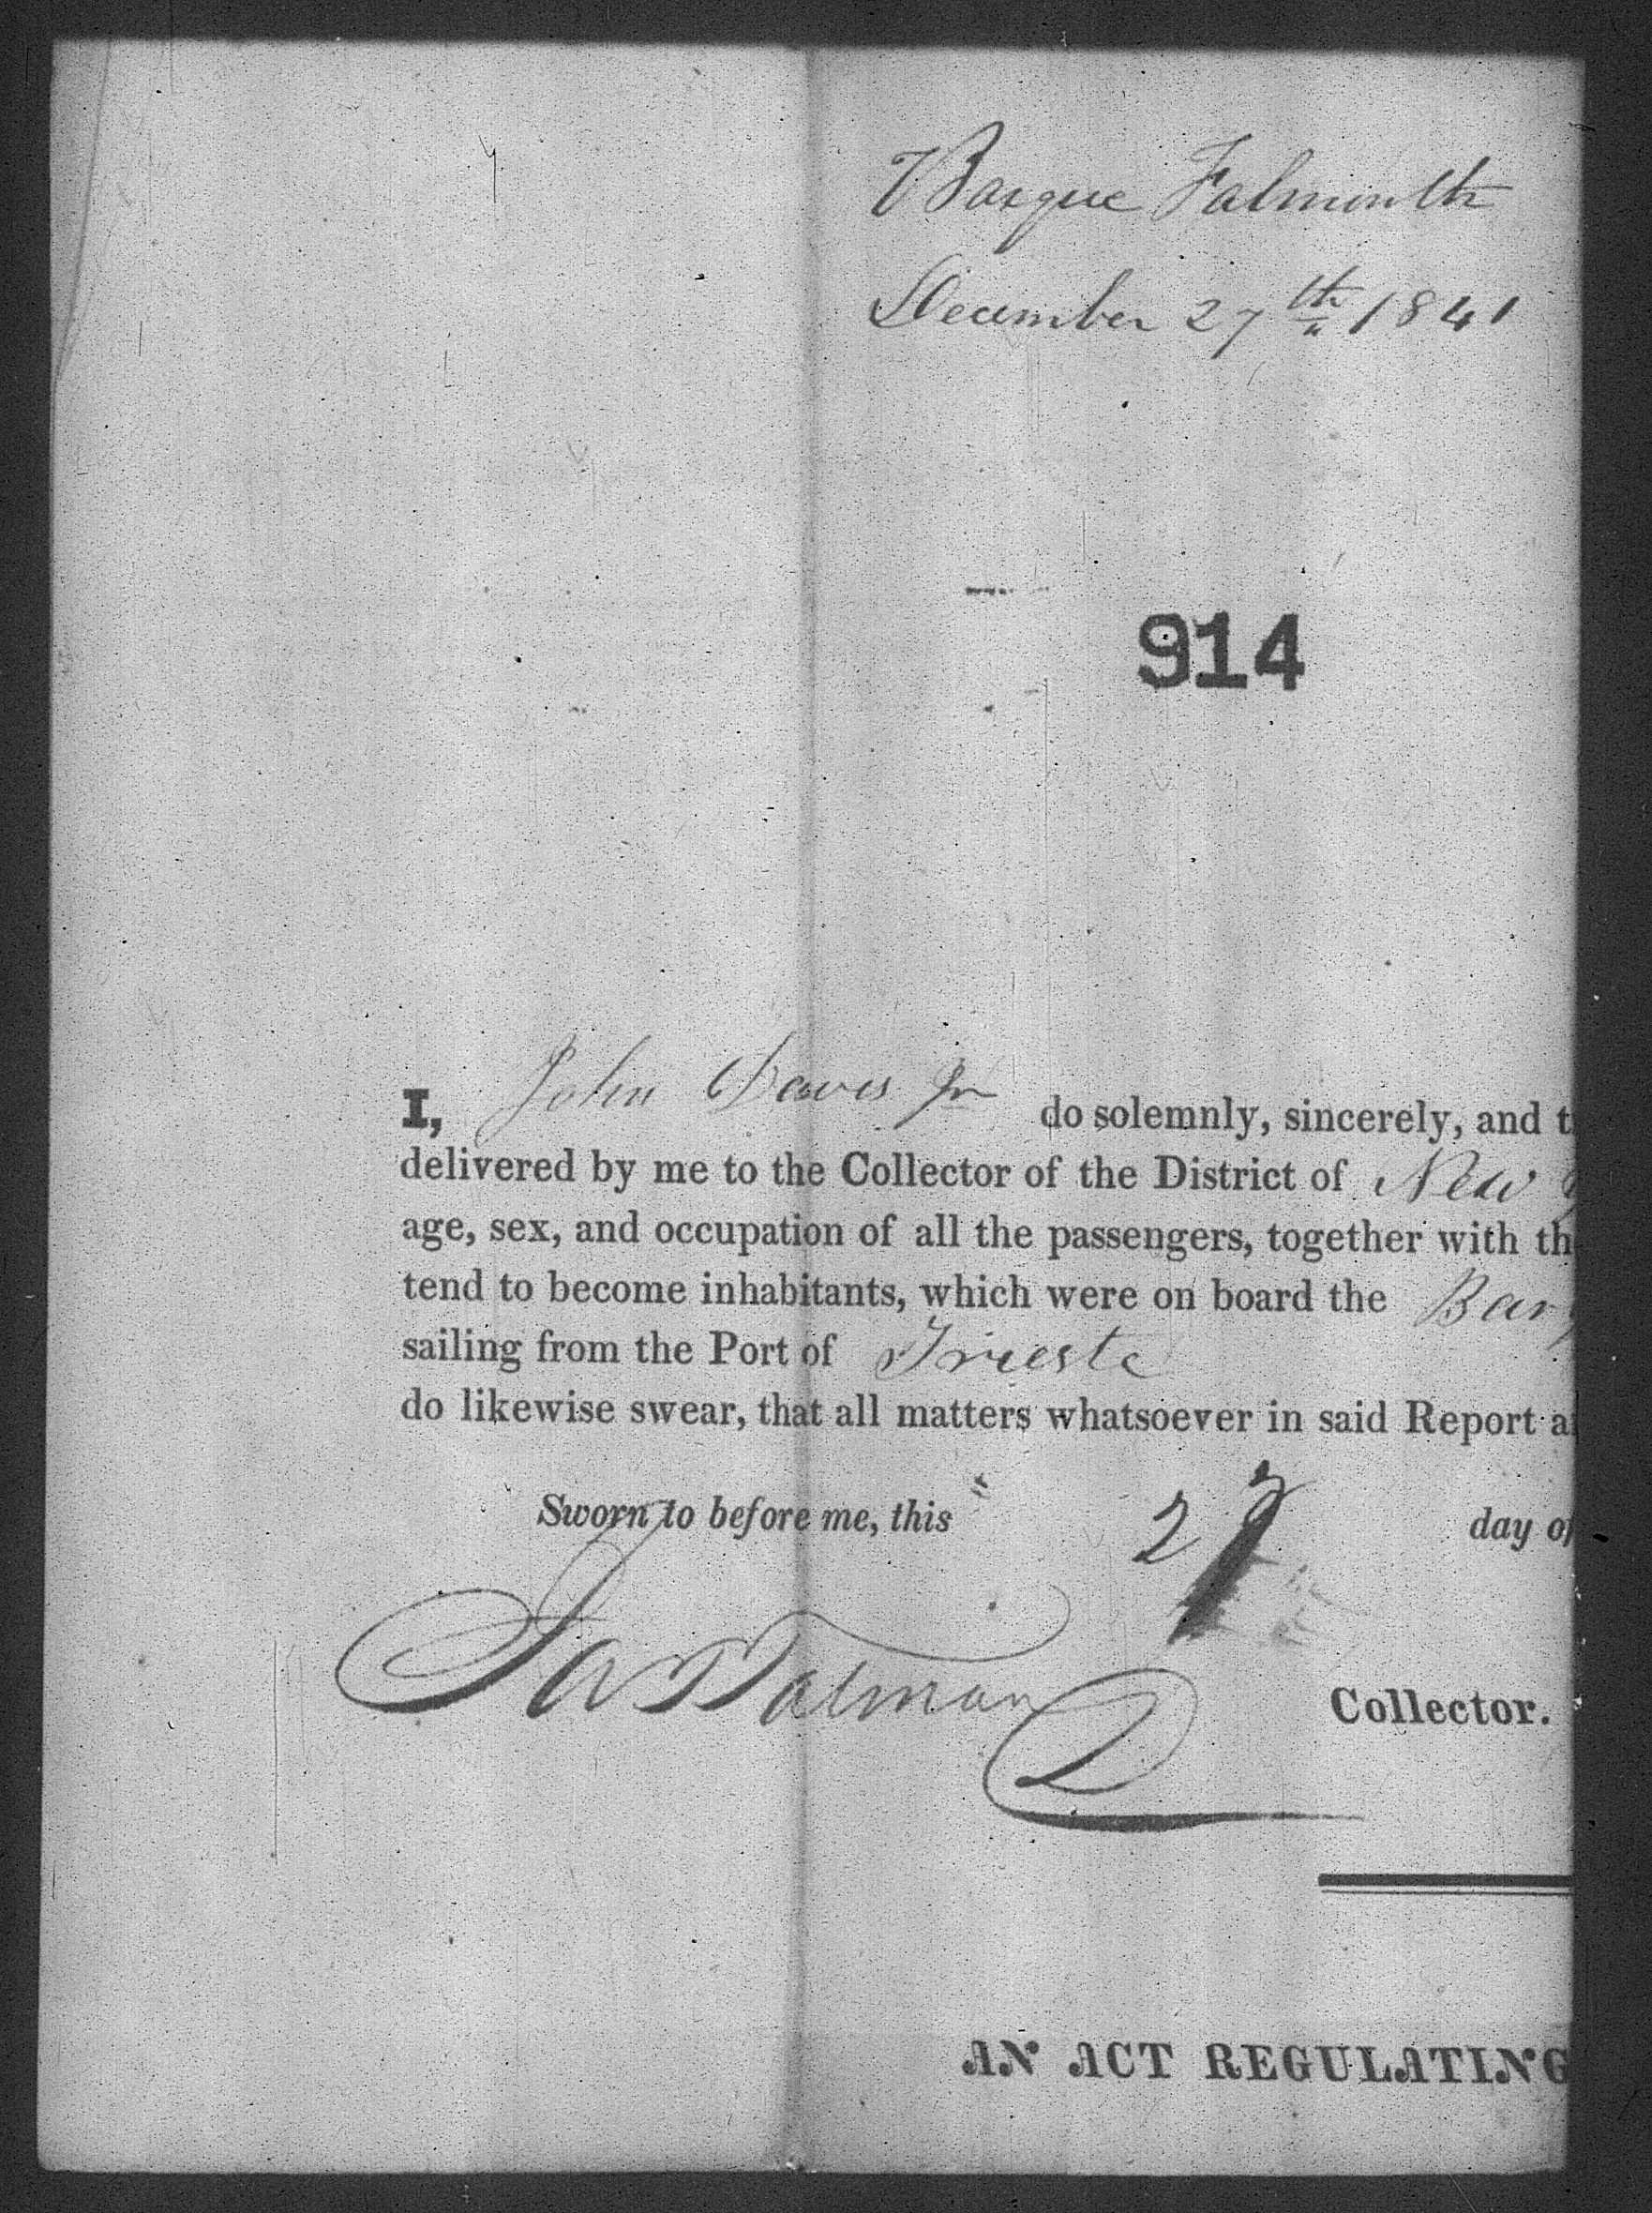 Barque Falmouth
December 27th 1841
914
I, John Davis Jr do solemnly, sincerely, and t
delivered by me to the Collector of the District of New Y
age, sex, and occupation of all the passengers, together with th
tend to become inhabitants, which were on board the Barq
sailing from the Port of Trieste
do likewise swear, that all matters whatsoever in said Report a
Sworn to before me, this 27 day of
Talman
Collector.
AN ACT REGULATING